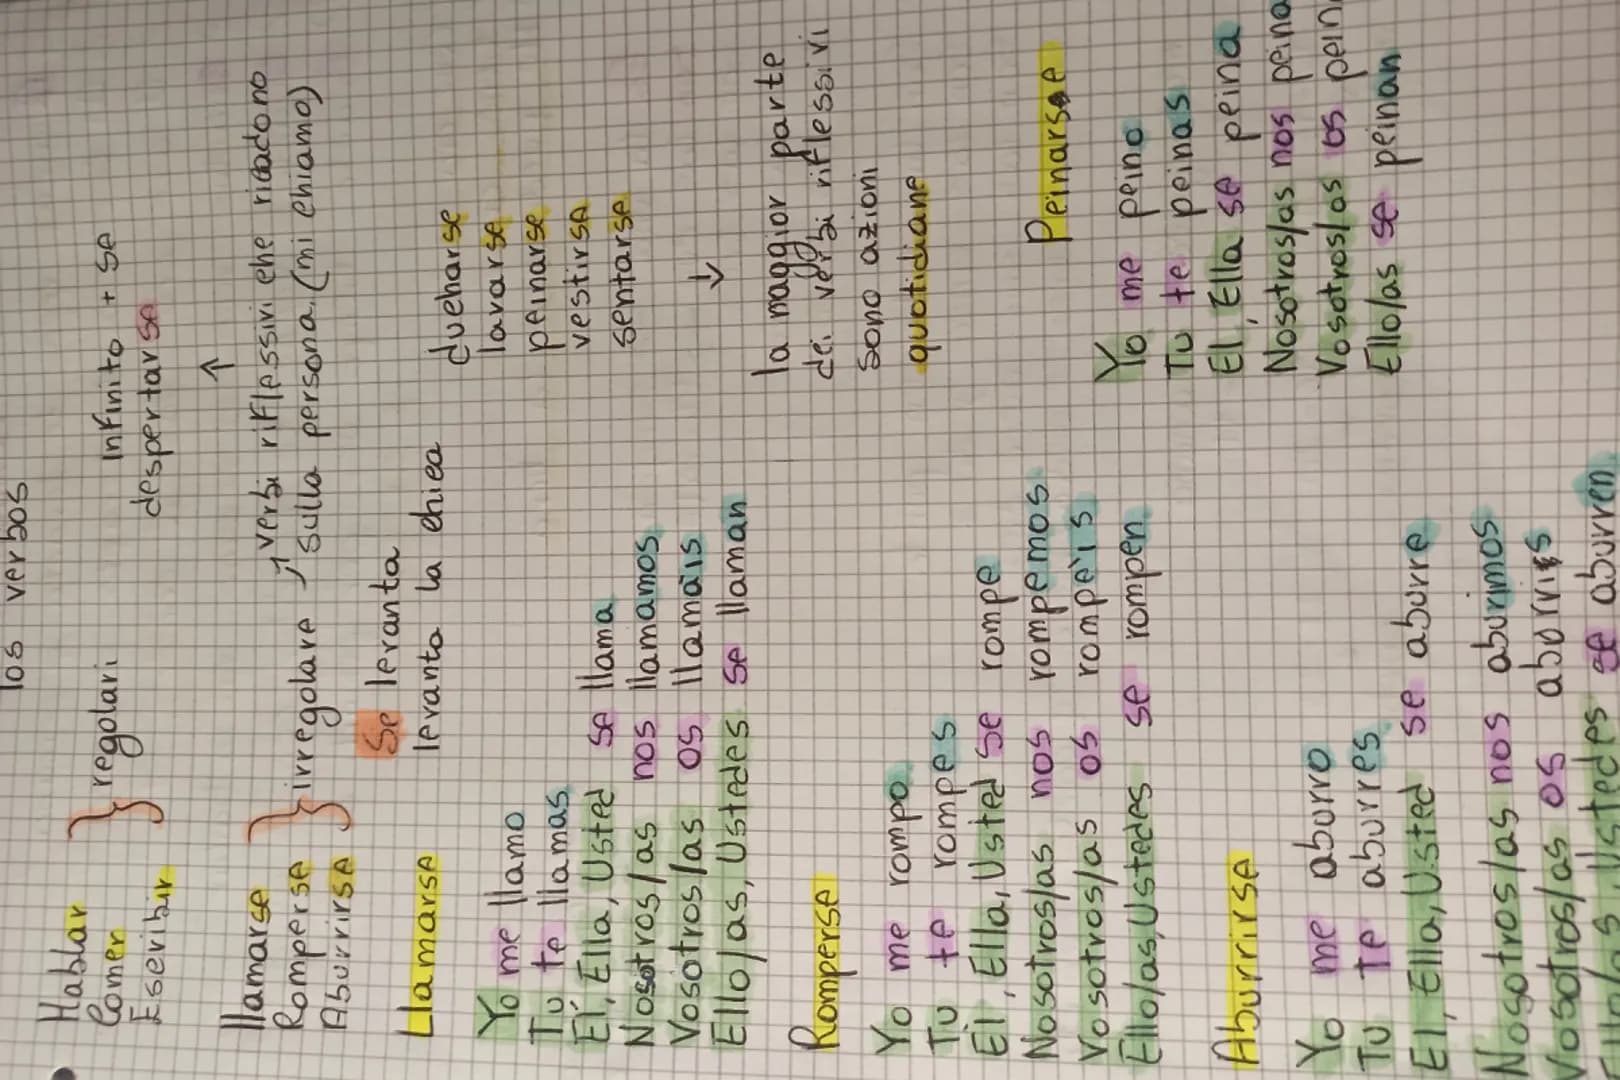 los verbos
Hablar
Comer } regolari
Escribir
Infinito + se
despertarse
↑
llamarse
Romperse } irregolare → verbi riflessivi che ricadono
Aburrirse
sulla persona. (mi chiamo)
Se levanta
levanto la chica
ducharse
lavarse
peinarse
vestirse
sentarse
↓
la maggior parte
dei verbi riflessivi
sono azioni
quotidiane
Llamarse
Yo me llamo
Tu te llamas
El, Ella, Usted se llama
Nosotros/as nos llamamos
Vosotros/as os llamáis
Ello/as, Ustedes se llaman
Romperse
Yo me rompo
Tu te rompes
El, Ella, Usted se rompe
Nosotros/as nos rompemos
Vosotros/as os rompéis
Ello/as, Ustedes se rompen
Peinarse
Yo me peino
Tu te peinas
El, Ella se peina
Nosotros/as nos peina
Vosotros/as os pein
Ello/as se peinan
Aburrirse
Yo me aburro
Tu te aburres
El, Ella, Usted se aburre
Nosotros/as nos aburimos
Vosotros/as os aburris
Ello/as, Ustedes se aburren